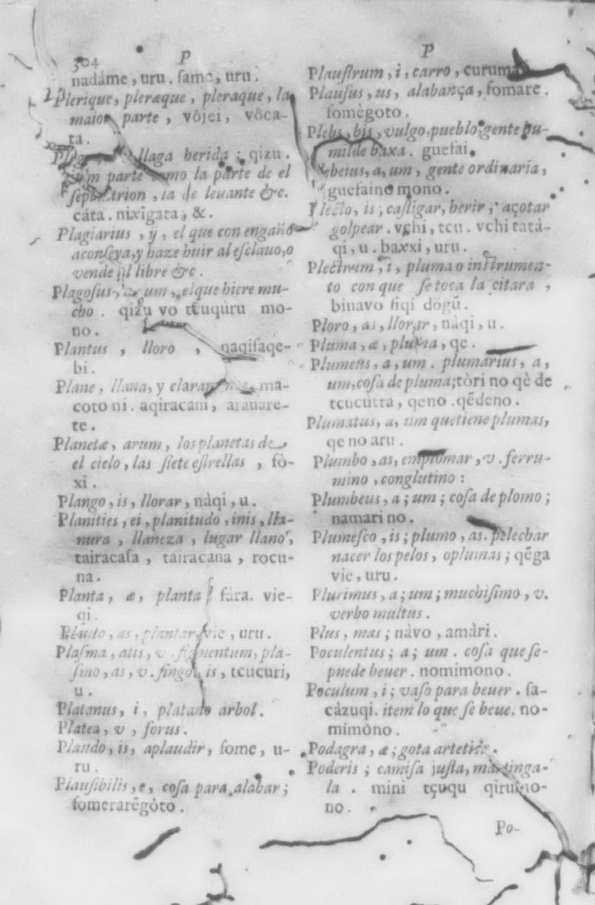 304 P
nadáme, uru. ſame, uru.
Plerique, pleræque, pleraque, la
maior parte, vôjei, vôca-
ta.
llaga herida; qizu.
parte como la parte de el
ſeptētrion, la de leuante &c.
cáta. nixigata, &.
Plagiarius, ÿ, el que con engaño
aconſeya, y haze huir al eſclauo, o
vende al libre &c.
Plagoſus, a, um, el que hiere mu-
cho. qizu vo tcuqúru mo-
no.
Plantus, lloro, naqiſaqe-
bi.
Plane, llana, y claramente, ma-
coto ni. aqiracani, arauare-
te.
Planetæ, arum, los planetas de
el cielo, las ſiete eſtrellas, fò-
xi.
Plango, is, llorar, nàqi, u.
Planities, ei, planitudo, inis, lla-
nura, llaneza, lugar llano,
tairacaſa, tairacana, rocu-
na.
Planta, æ, planta; fára. vie-
qi.
Planto, as, plantar, vie, uru.
Plaſma, atis, v. figmentum, pla-
ſmo, as, v. fingo, is, tcucuri,
u.
Platanus, i, platano arbol.
Platea, v, forus.
Plando, is, aplaudir, fome, u-
ru.
Plauſibilis, e, coſa para alabar;
fomerarēgòto.
P
Plauſtrum, i, carro, curuma.
Plauſus, us, alabança, fomare.
fomègoto.
Plebs, bis, vulgo, pueblo, gente hu-
milde baxa. gueſai.
Plebeius, a, um, gente ordinaria,
gueſaino mono.
Plecto, is; caſtigar, herir; açotar
golpear. vchi, tcu. vchi tatá-
qi, u. baxxi, uru.
Plectrum, i, pluma o inſtrumen-
to con que ſe toca la citara,
binavo fiqi dogũ.
Ploro, as, llorar, nàqi, u.
Pluma, æ, pluma, qe.
Plumeus, a, um. plumarius, a,
um, coſa de pluma; tòri no qè de
tcucutta, qeno. qēdeno.
Plumatus, a, um que tiene plumas,
qe no aru.
Plumbo, as, emplomar, v. ferru-
mino, conglutino:
Plumbeus, a; um; coſa de plomo;
namari no.
Plumeſco, is; plumo, as. pelechar
nacer los pelos, o plumas; qēga
vie, uru.
Plurimus, a; um; muchiſimo, v.
verbo multus.
Plus, mas; nàvo, amàri.
Poculentus; a; um. coſa que ſe-
puede beuer. nomimono.
Poculum, i; vaſo para beuer. ſa-
càzuqi. item lo que ſe beue. no-
mimòno.
Podagra, æ; gota artetica.
Poderis; camiſa juſta, ma, tinga-
la. mini tçuqu qirumo-
no.
Po-